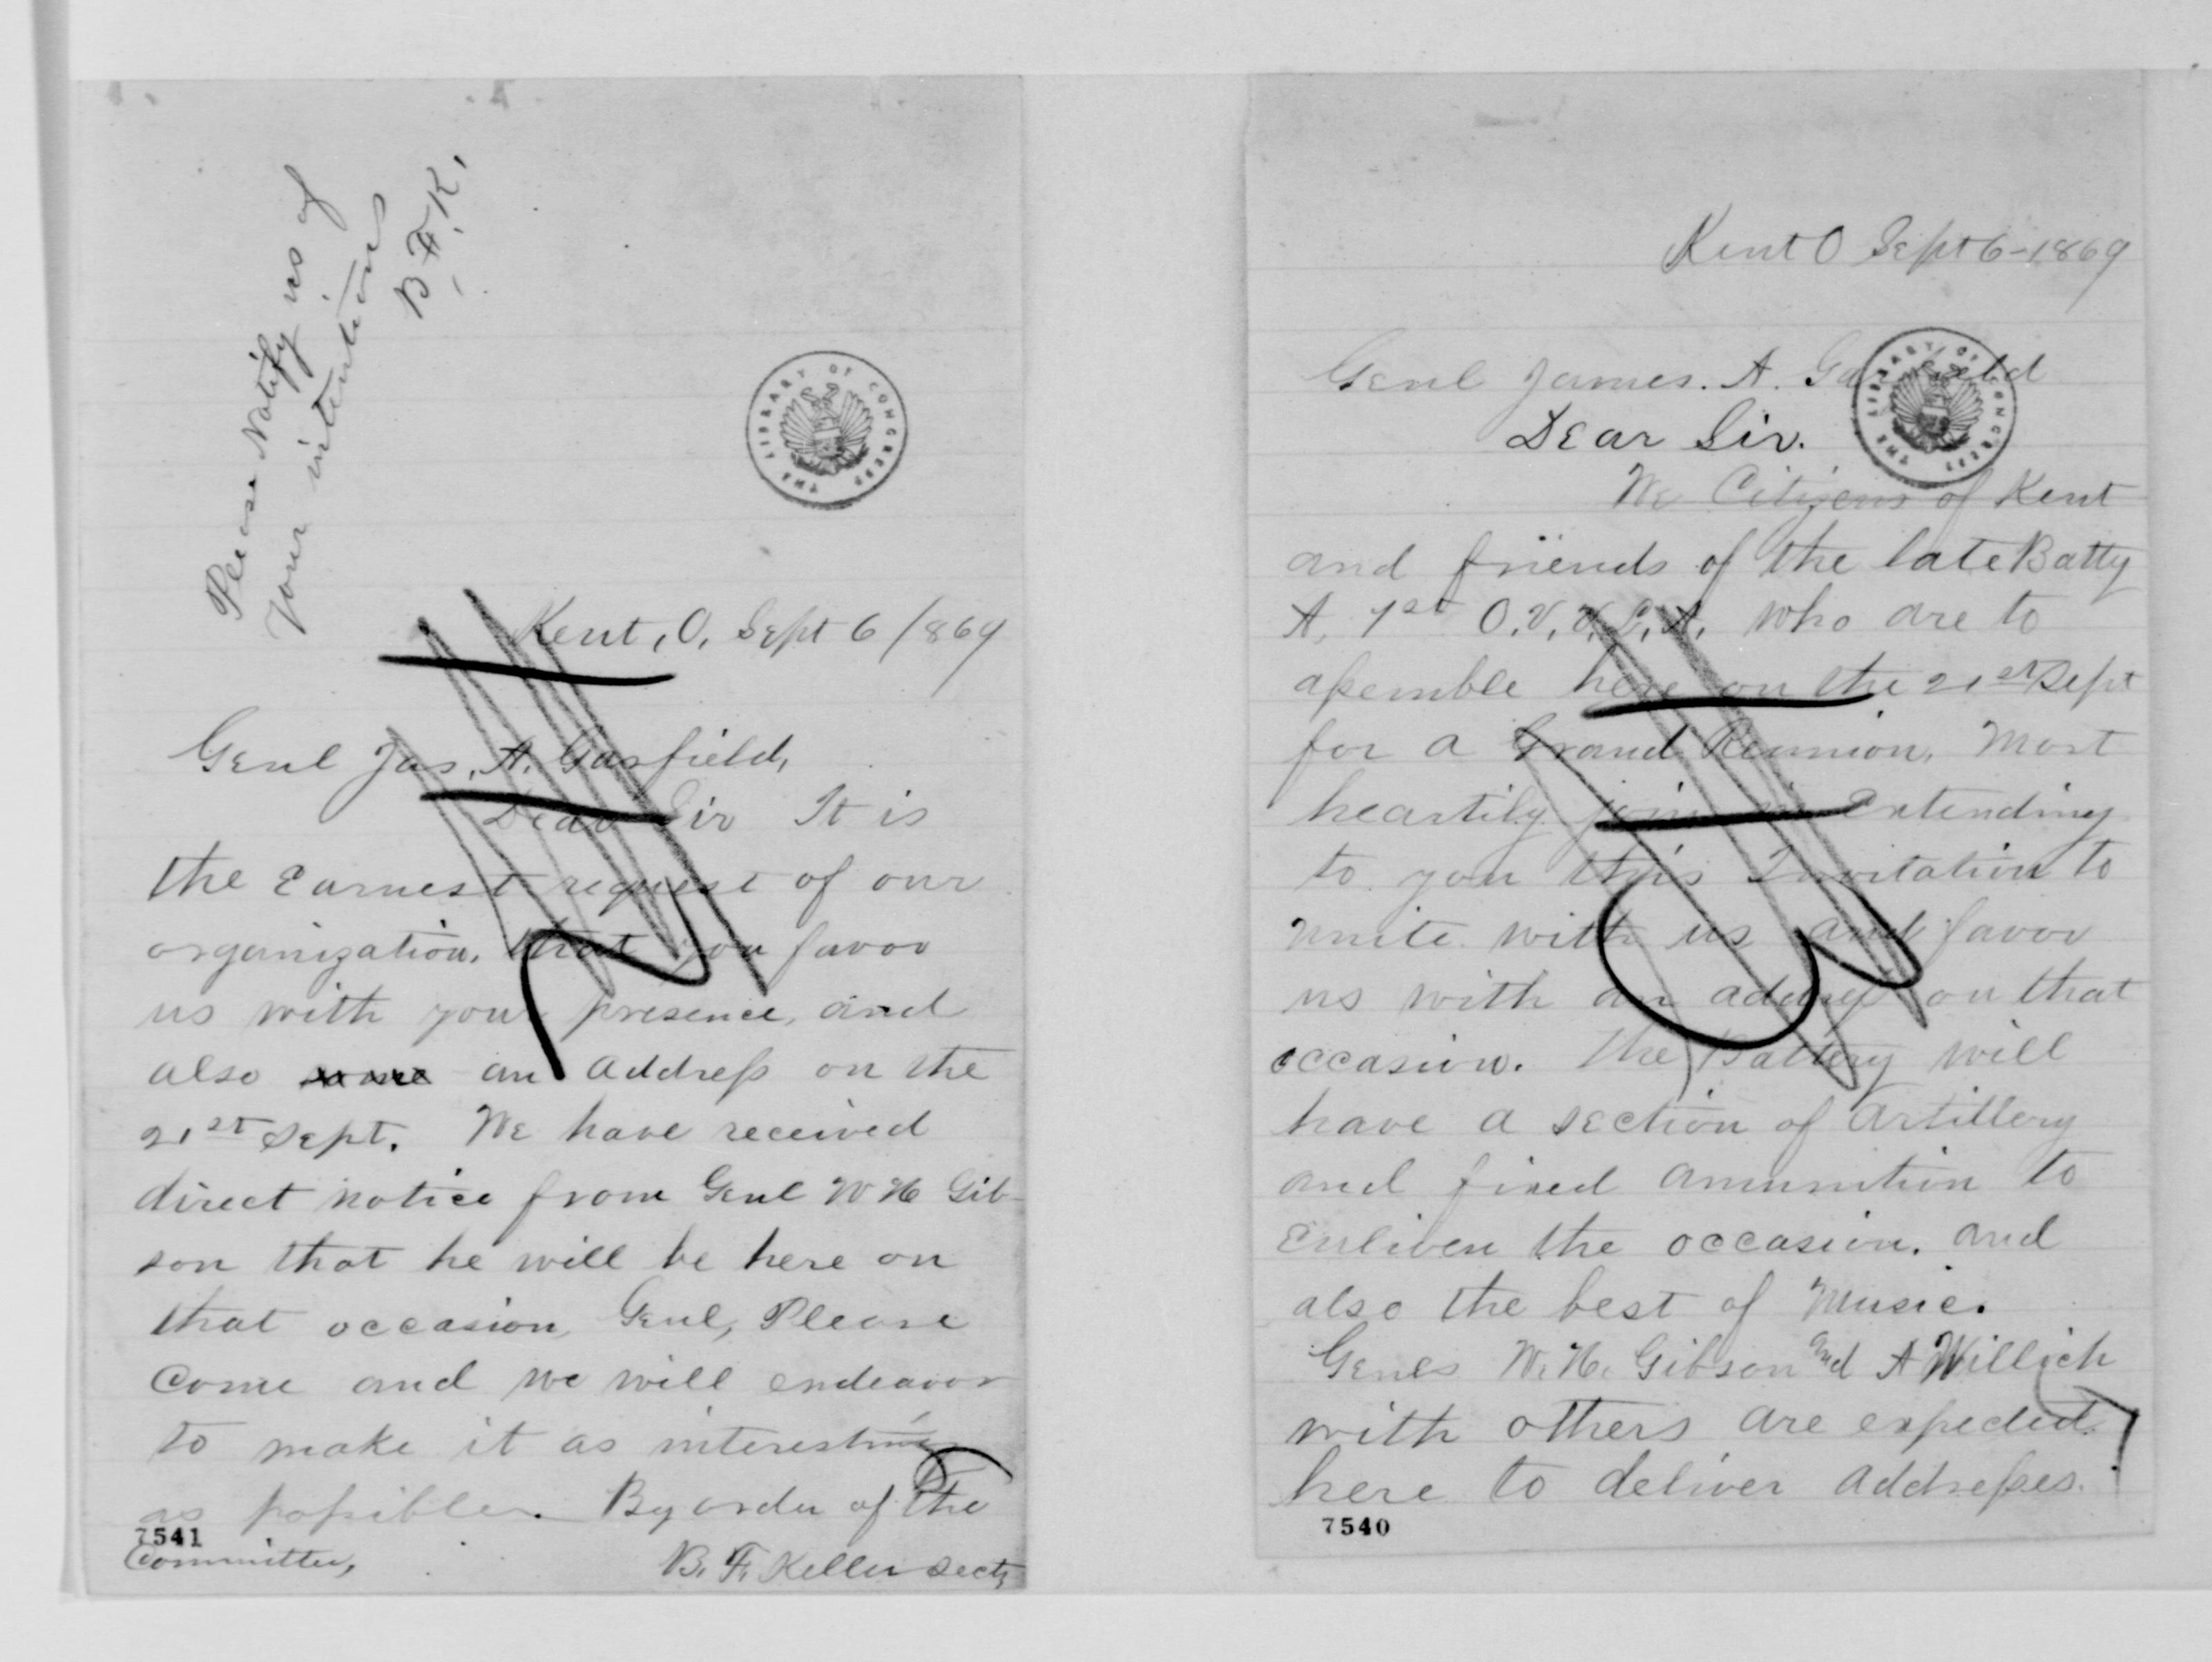 Please Notify us of
Your intentions
B. F. K.
THE LIBRARY OF CONGRESS
Kent, O, Sept 6/869
Genl Jas. A. Garfield,
Dear Sir It is
the Earnest request of our
organization, that you favor
us with your presence, and
also an address on the
21st Sept. We have received
direct notice from Genl W H Gib-
son that he will be here on
that occasion, Genl, Please
Come and we will endeavor
to make it as interesting
as possible. By order of the
7541
Committee,
B. F. Keller Secty
Kent O Sept 6-1869
Genl James. A. Garfield
THE LIBRARY OF CONGRESS
Dear Sir.
We Citizens of Kent
and friends of the late Batty
A, 1st O. V. V. L. A. who are to
assemble here on the 21st Sept
for a Grand Reunion, Most
heartily join in Extending
to you this Invitation to
unite with us and favor
us with an address on that
occasion. The Battery will
have a section of Artillery
and fixed ammunition to
Enliven the occasion. and
also the best of Music.
Genls W. H. Gibson and A Willich
with others are expected
here to deliver addresses.
7540